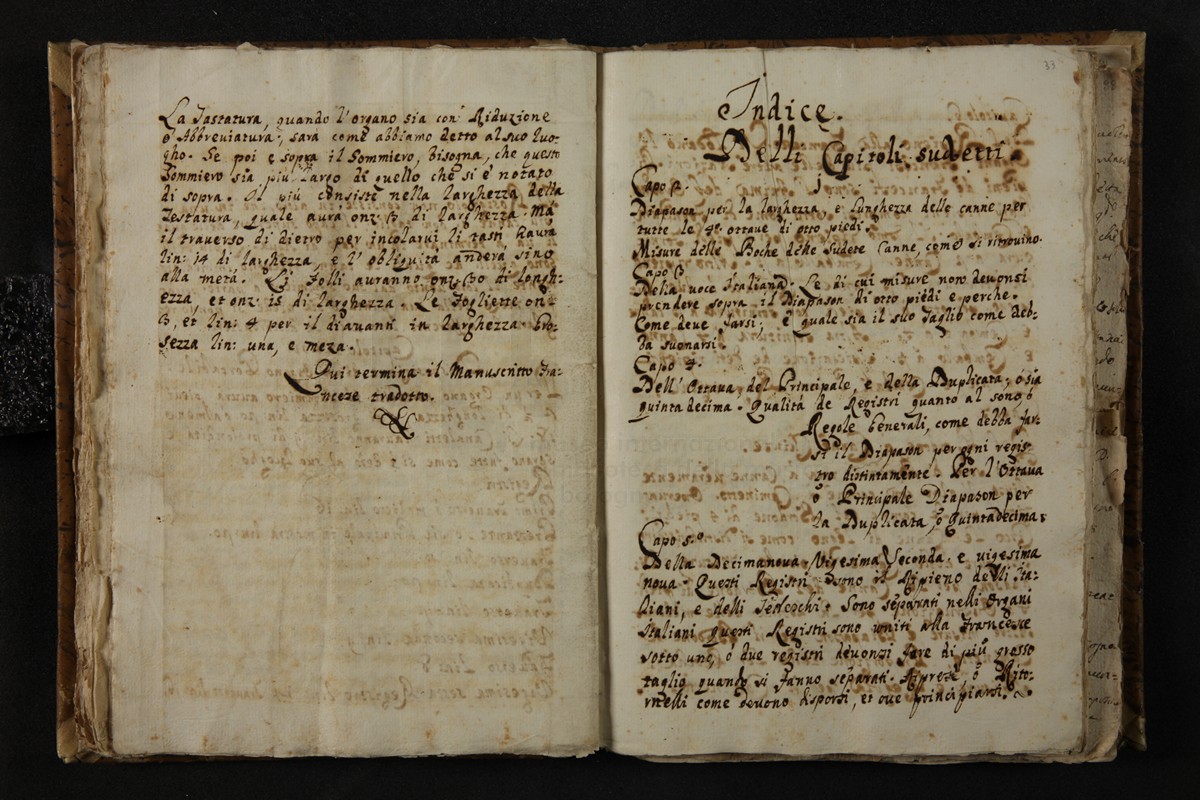 La Tastatura, quando l'organo sia con Riduzione
o Abbreviatura, sarà come abbiamo detto al suo luo-
gho. Se poi è sopra il Sommiero, Bisogna, che questo
Sommiero sia più largo di quello che si è notato
di sopra. Il più consiste nella larghezza della
Testatura, quale aurà onz: 3 di larghezza. Mà
il traverso di dietro per incolarui li tasti haurà
lin: 14 di larghezza, e l'obliquità anderà sino
alla metà. Li Folli auranno onz: 30 di longh-
ezza, et onz: 15 di larghezza. Le Fogliette onz:
3, et lin: 4 per il diauanti in larghezza Gro-
sezza lin: una, e meza.
Qui termina il Manuscritto Fra-
nceze tradotto.
33
Indice.
Delli Capitoli sudetti.
Capo 2.
Diapason per la larghezza, e lunghezza delle canne per
tutte le 4e ottave di otto piedi.
Misure delle Boche delle Sudete Canne, come si ritrovino.
Capo 3
Della voce Italiana. Le di cui misure non devonsi
prendere sopra il Diapason di otto piedi e perche.
Come deve farsi, e quale sia il suo Taglio come deb-
ba suonarsi.
Capo 4.
Dell'Ottava del Principale, e della Duplicata, o sia
quinta decima. Qualità de Registri quanto al sono ó
Regole Generali, come debba far-
si il Diapason per ogni regis-
tro distintamente. Per l'Ottava
ò Principale Diapason per
la Duplicata, ò Quintadecima.
Capo 5.o
Della Decimanova, Vigesima Seconda, e vigesima
nona. Questi Registri sono il Ripieno delli Ita-
liani, e delli Tedeschi. Sono separati nelli Organi
Italiani questi Registri sono uniti alla Francese
sotto uno, ò due registri devonsi fare di più grosso
taglio quando si fanno separati. Riprese, ò Rito-
rnelli come devono disporsi, et ove principiarsi.